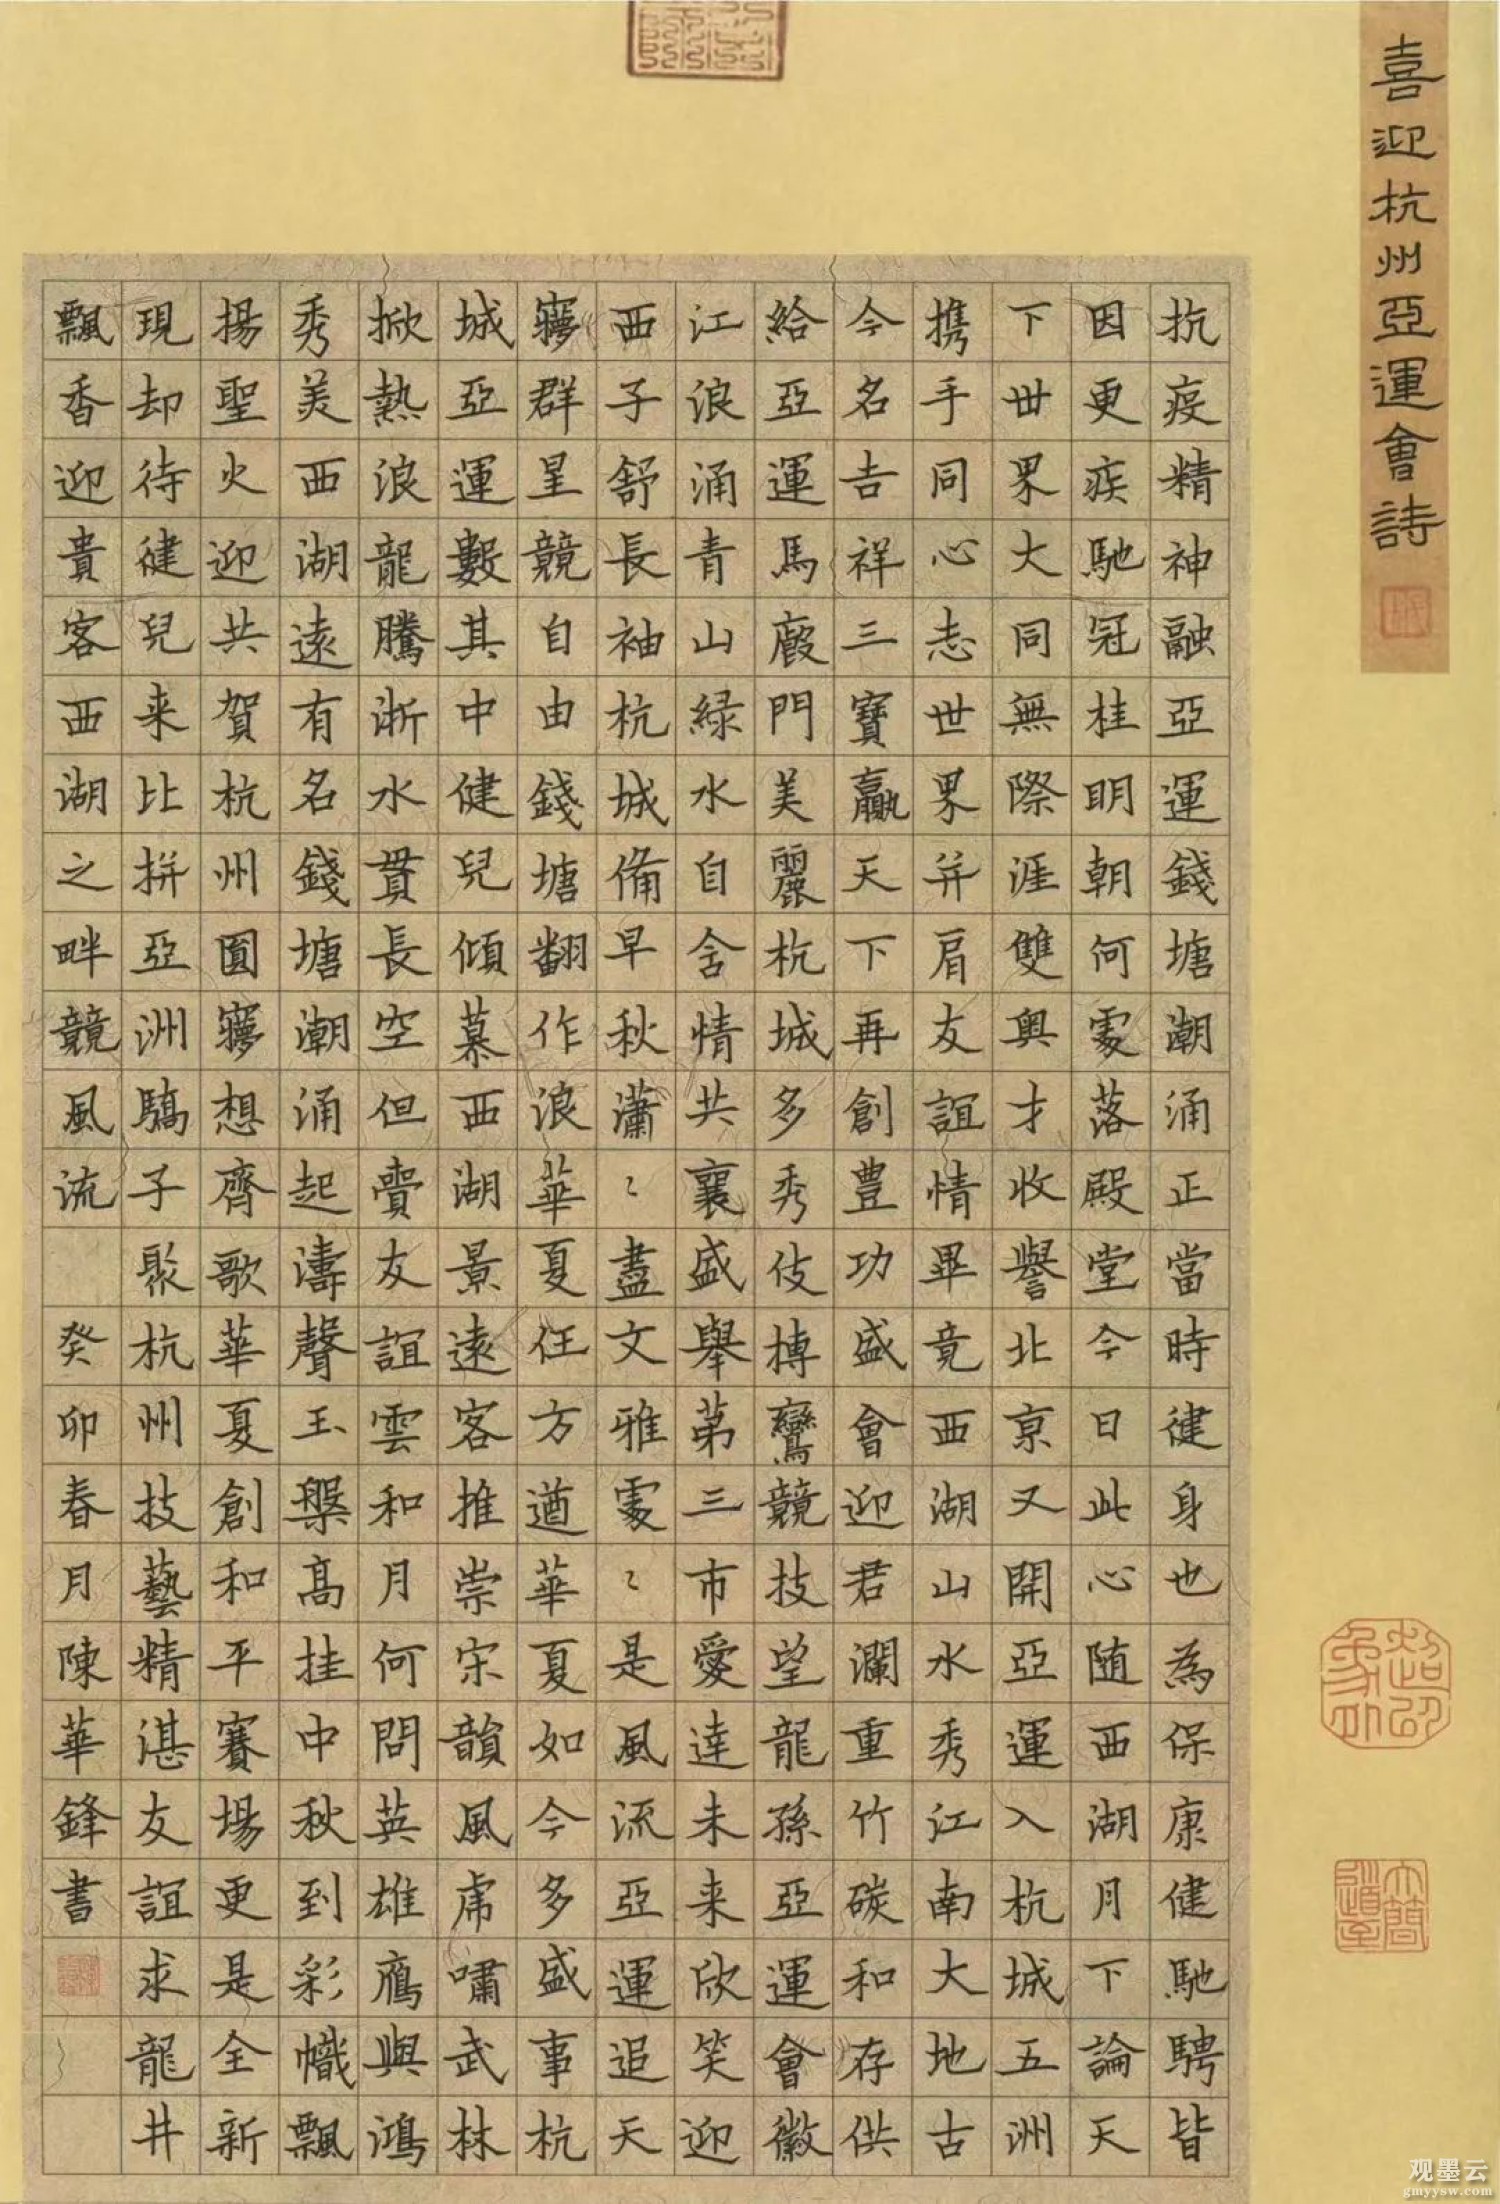 喜迎杭州亞運會詩
抗疫精神融亞運錢塘潮涌正當時徤身也為保康健馳騁皆
因更疾馳冠桂明朝何處落殿堂今日此心随西湖月下論天
下世界大同無際涯雙奥才收譽北京又開亞運入杭城五洲
携手同心志世界并肩友誼情畢竟西湖山水秀江南大地古
今名吉祥三寶贏天下再創豊功盛會迎君瀾重竹碳和存供
給亞運馬廄門美麗杭城多秀伎摶鸞競技望龍孫亞運會徽
江浪涌青山緑水自含情共襄盛舉第三市愛達未来欣笑迎
西子舒長袖杭城備早秋瀟〻盡文雅處〻是風流亞運追天
夢群呈競自由錢塘翻作浪華夏任方遒華夏如今多盛事杭
城亞運數其中健兒傾慕西湖景遠客推崇宋韻風虎嘯武林
掀熱浪龍騰浙水貫長空但賣友誼雲和月何問英雄鴈與鴻
秀美西湖遠有名錢塘潮涌起濤聲玉槃高挂中秋到彩幟飄
揚聖火迎共賀杭州圓夢想齊歌華夏創和平賽場更是全新
現却待徤兒来比拼亞洲驕子聚杭州技藝精湛友誼求龍井
飄香迎貴客西湖之畔競風流 癸卯春月陳華鋒書
观墨云
gmyysw.com